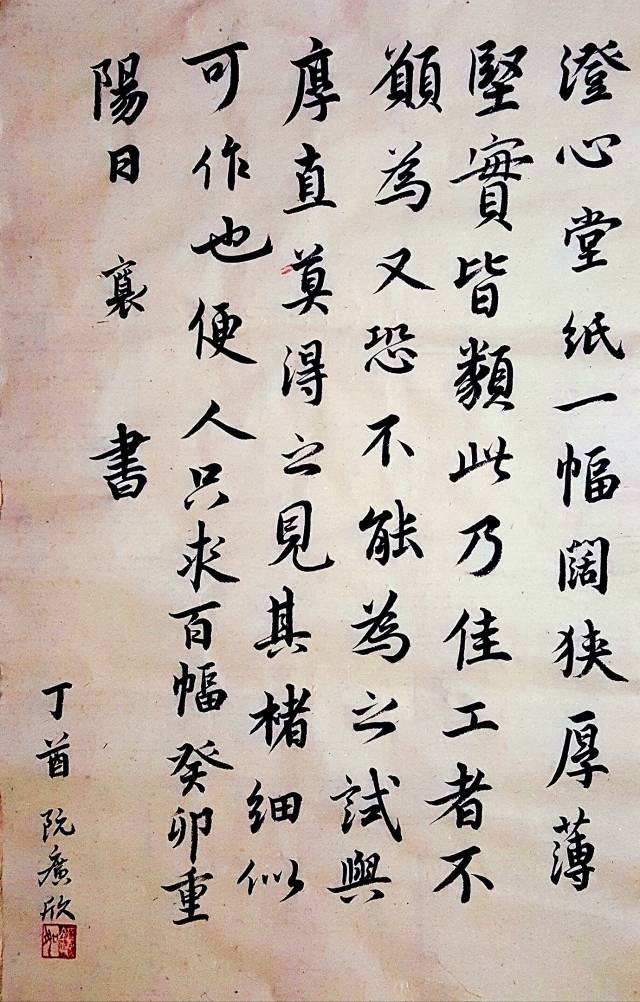 澄心堂紙一幅闊狹厚薄
堅實皆類此乃佳工者不
願為又恐不能為之試與
厚直莫得之見其楮細似
可作也便人只求百幅癸卯重
陽日 襄 書
丁酋 阮廣欣